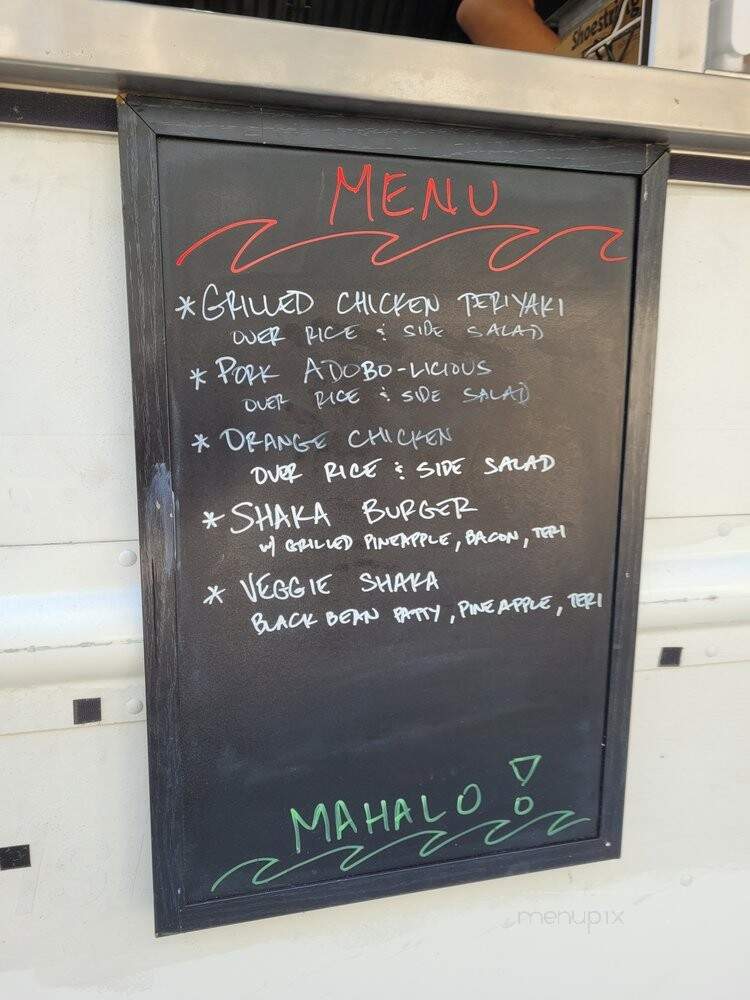 Shoestring
MENU
* GRILLED CHICKEN TERIYAKI
OVER RICE & SIDE SALAD
* PORK ADOBO-LICIOUS
OVER RICE & SIDE SALAD
* ORANGE CHICKEN
OVER RICE & SIDE SALAD
* SHAKA BURGER
w/ GRILLED PINEAPPLE, BACON, TERI
* VEGGIE SHAKA
BLACK BEAN PATTY, PINEAPPLE, TERI
MAHALO!
menupix